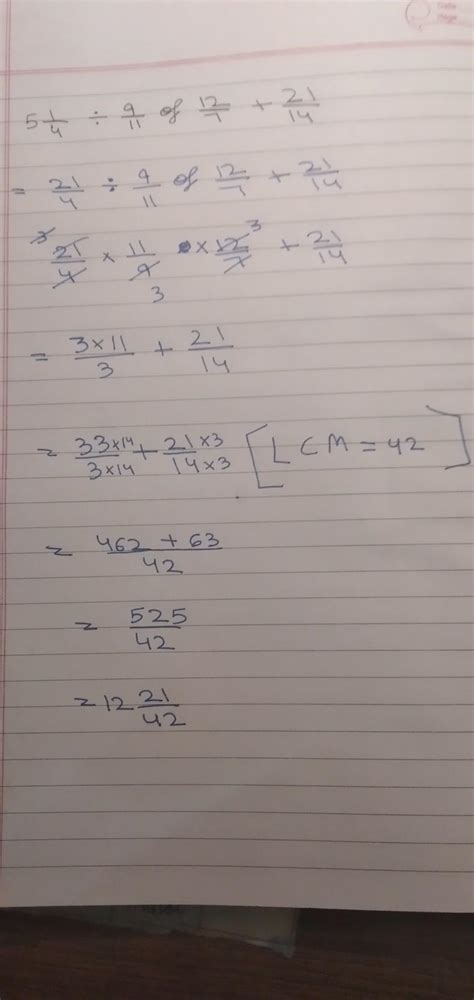 Date
Page
5 1/4 ÷ 9/11 of 12/7 + 21/14
= 21/4 ÷ 9/11 of 12/7 + 21/14
3 21/4 × 11/9 3 × 12/7 3 + 21/14
= 3×11/3 + 21/14
= 33×14/3×14 + 21×3/14×3 [LCM = 42]
= 462 + 63/42
= 525/42
= 12 21/42